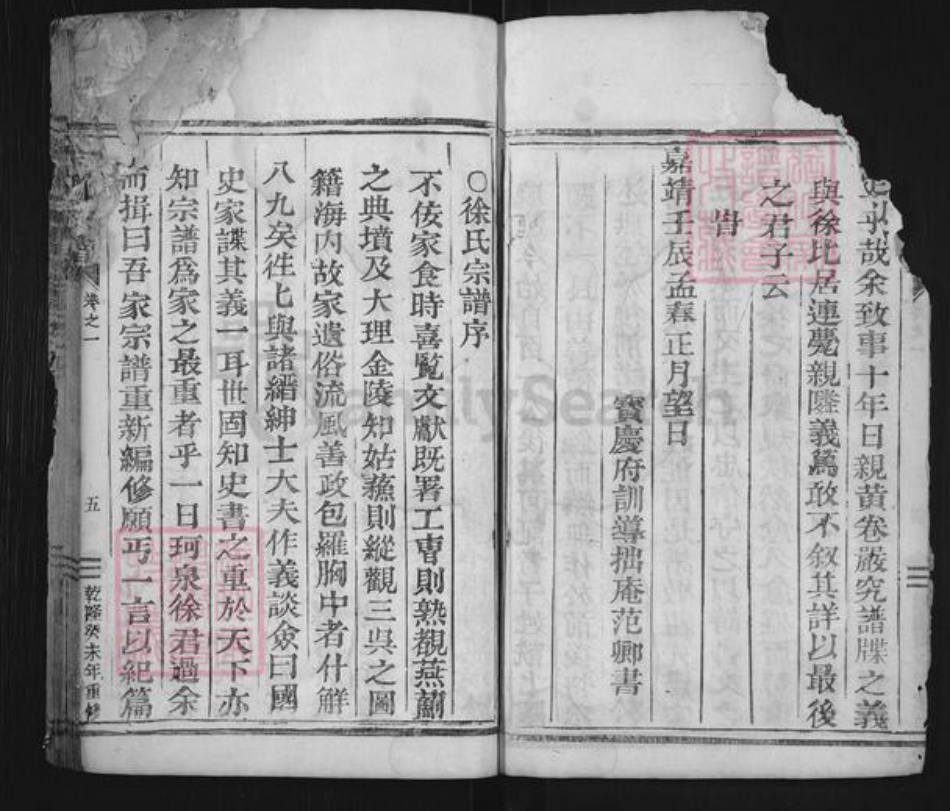 乎哉余致事十年日親黃卷嚴究譜牒之義
與徐比居連甍親隆義篤敢不叙其詳以最後
之君子云
旹
嘉靖壬辰孟春正月望日
寶慶府訓導拙庵范卿書
○徐氏宗譜序
不佞家食時喜覧文獻既署工曹則熟觀燕薊
之典墳及大理金陵知姑蘇則縱觀三吳之圖
籍海内故家遺俗流風善政包羅胸中者什觧
八九矣徃七與諸縉紳士大夫作義談僉曰國
史家諜其義一耳世固知史書之重於天下亦
知宗譜爲家之最重者乎一日珂泉徐君過余
而揖曰吾家宗譜重新編修願丐一言以紀篇
卷之一
五
乾隆癸未年重修
FamilySearch